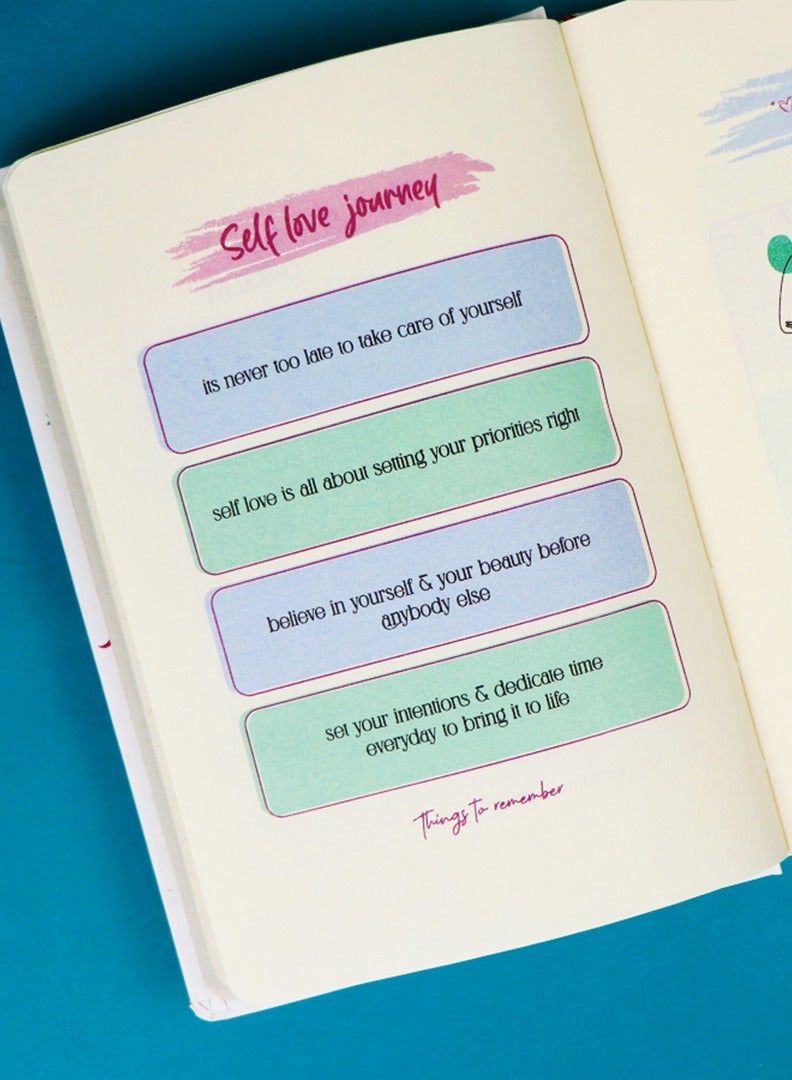 Self love journey
its never too late to take care of yourself
self love is all about setting your priorities right
believe in yourself & your beauty before
anybody else
set your intentions & dedicate time
everyday to bring it to life
Things to remember